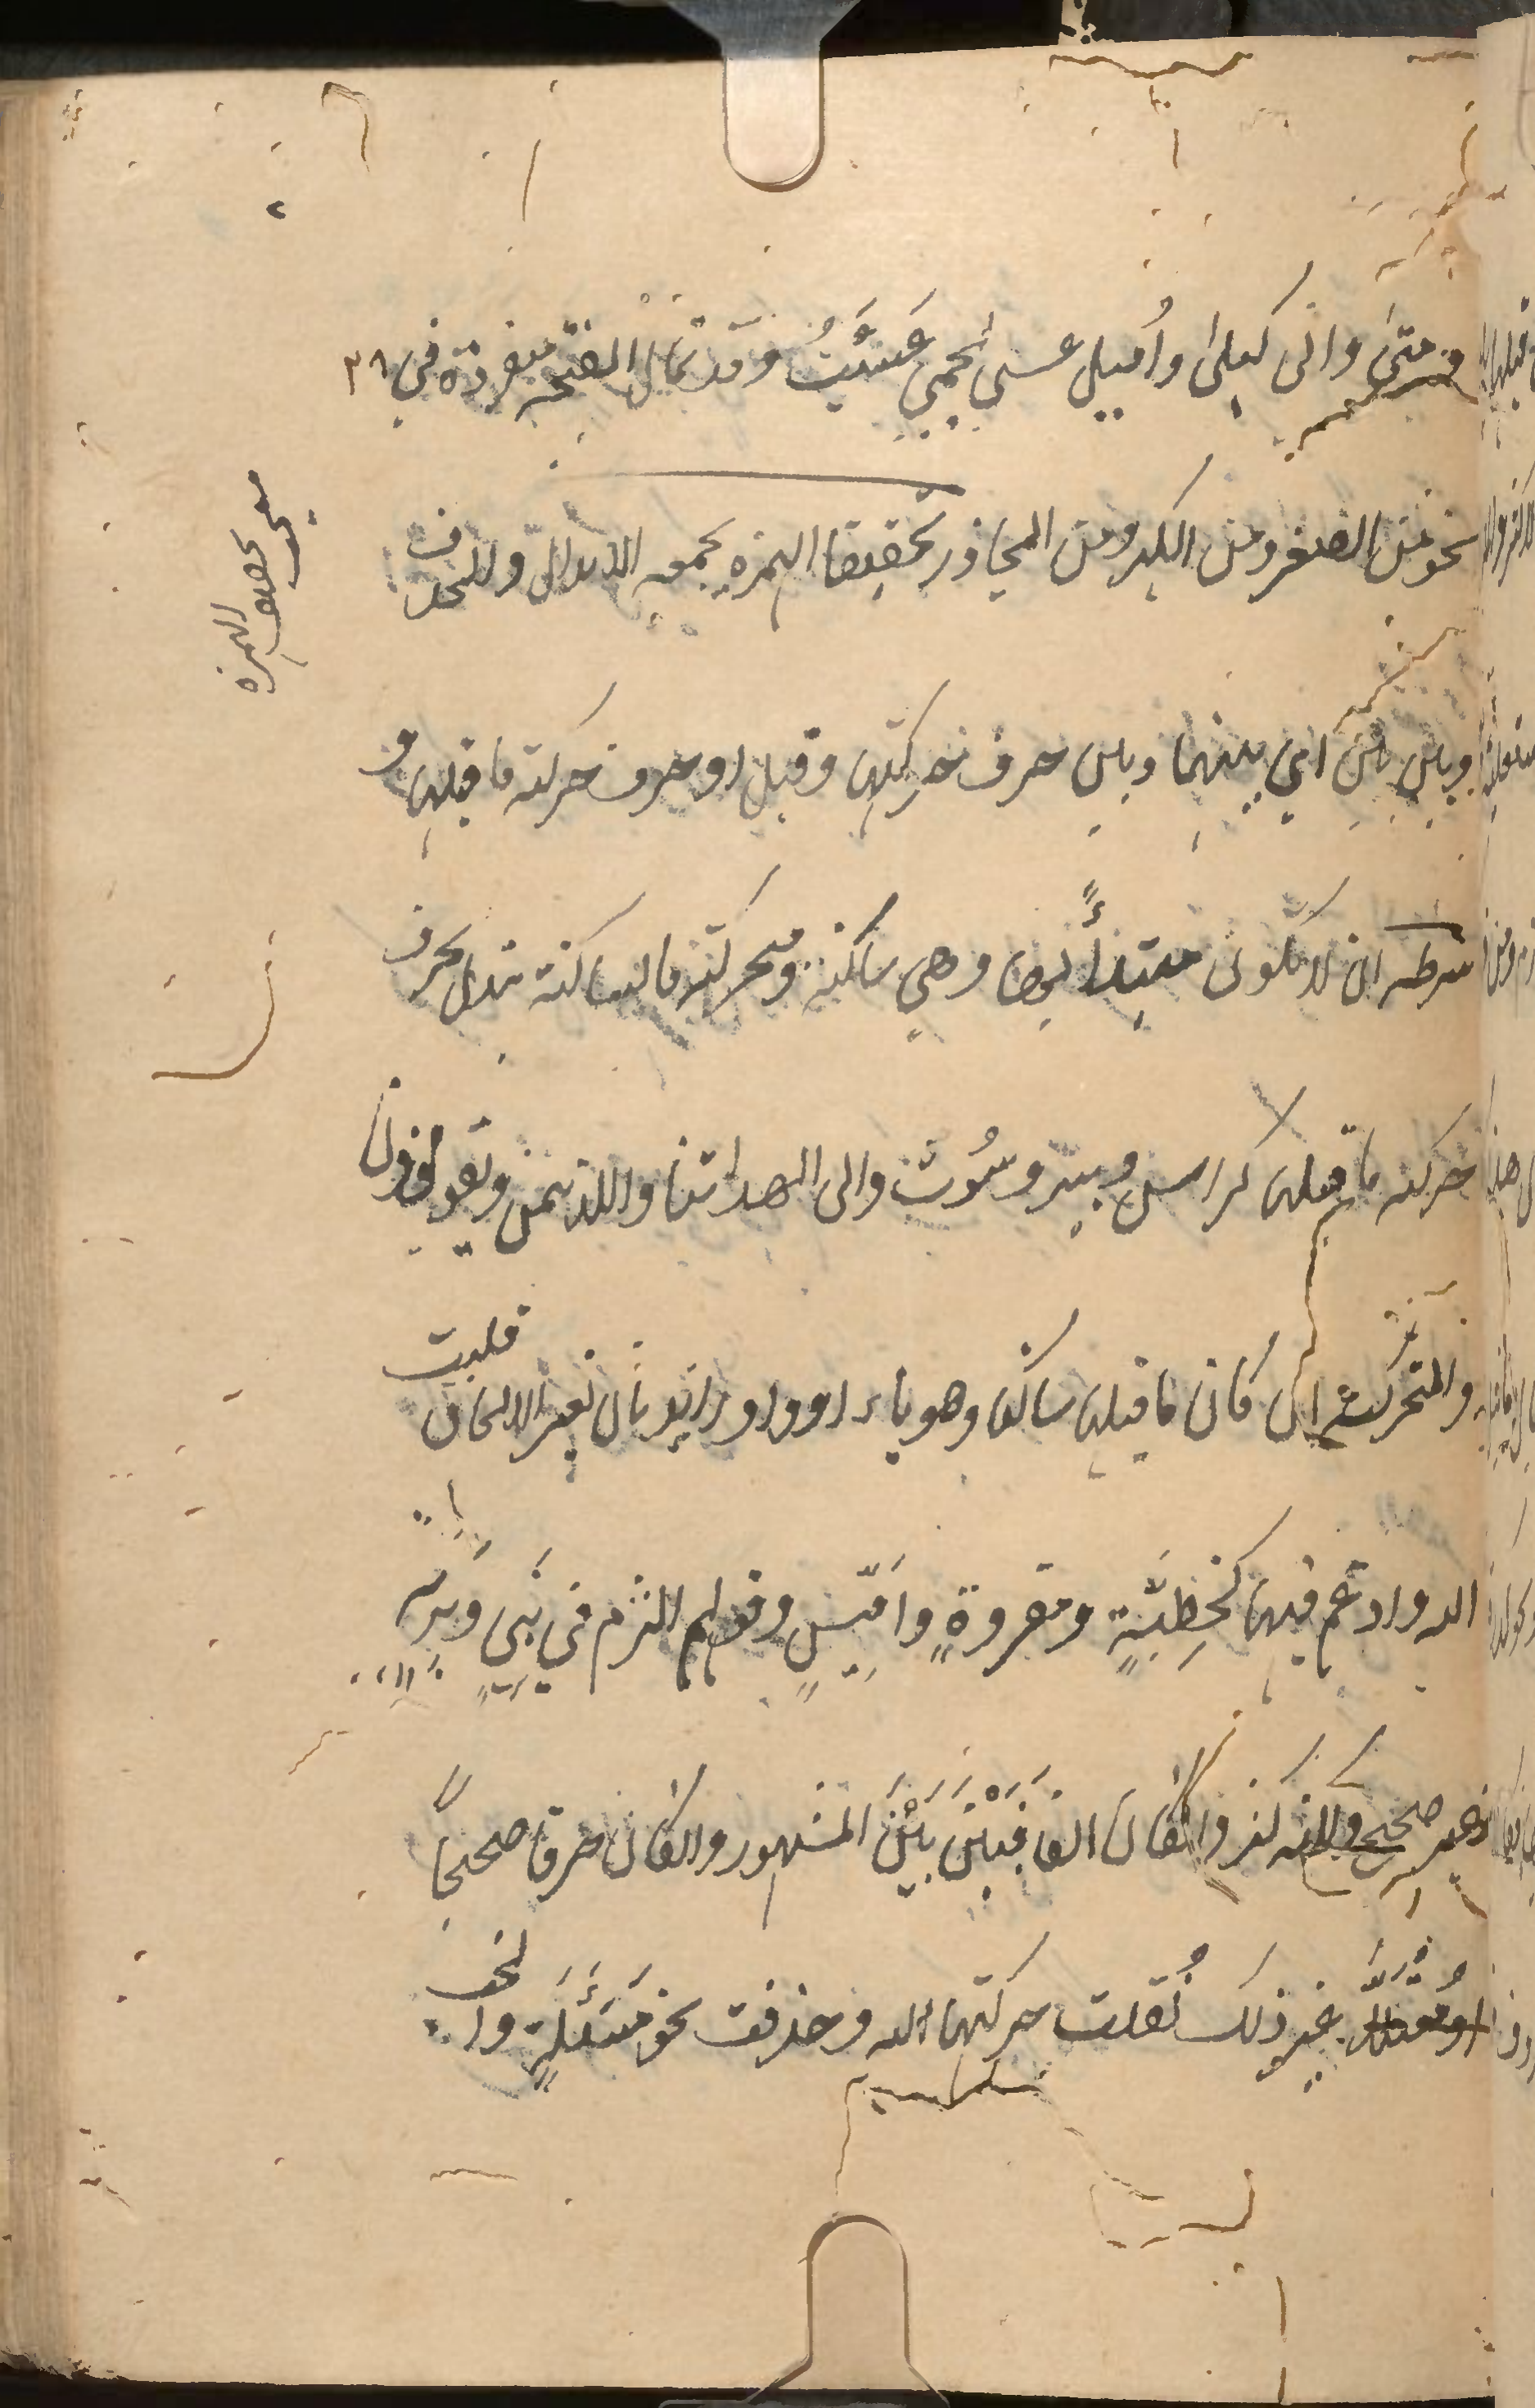 ومتى وانى كبلى واميل عسى لمجيء عَسَيْتُ وقد تمال الفتحة مفردة في
نحو من الضرر ومن الكبر ومن المحاذر تحقيقا الهمزة يجمعه الابدال والحذف
وبين بين اي بينها وبين حرف حركتها وقيل او حرف حركة ما قبلها و
شرطه ان لا تكون مبتدأً بها وهي ساكنة ومتحركة فالساكنة تبدل بحرف
حركة ما قبلها كراس وبير وسُوت والى الهداتنا والذيتمن ويقولوذن
والمتحركة ان كان ما قبلها ساكنا وهو ياء او واو زائدتان لغير الالحاق قلبت
اليه وادغم فيها كخطِيَّةٍ ومقروةٍ وافَيِّسٍ وقولهم التزم في نَبِيٍ وبرية
غير صحيح ولكنه كثر وان كان الفا فبَيْنَ بَيْنَ المشهور وان كان حرفا صحيحًا
او معتلا غير ذلك نُقلت حركتها اليه وحذفت نحو مَسَئَلَةٍ والخب
مبحث
تخفيف
الهمزة